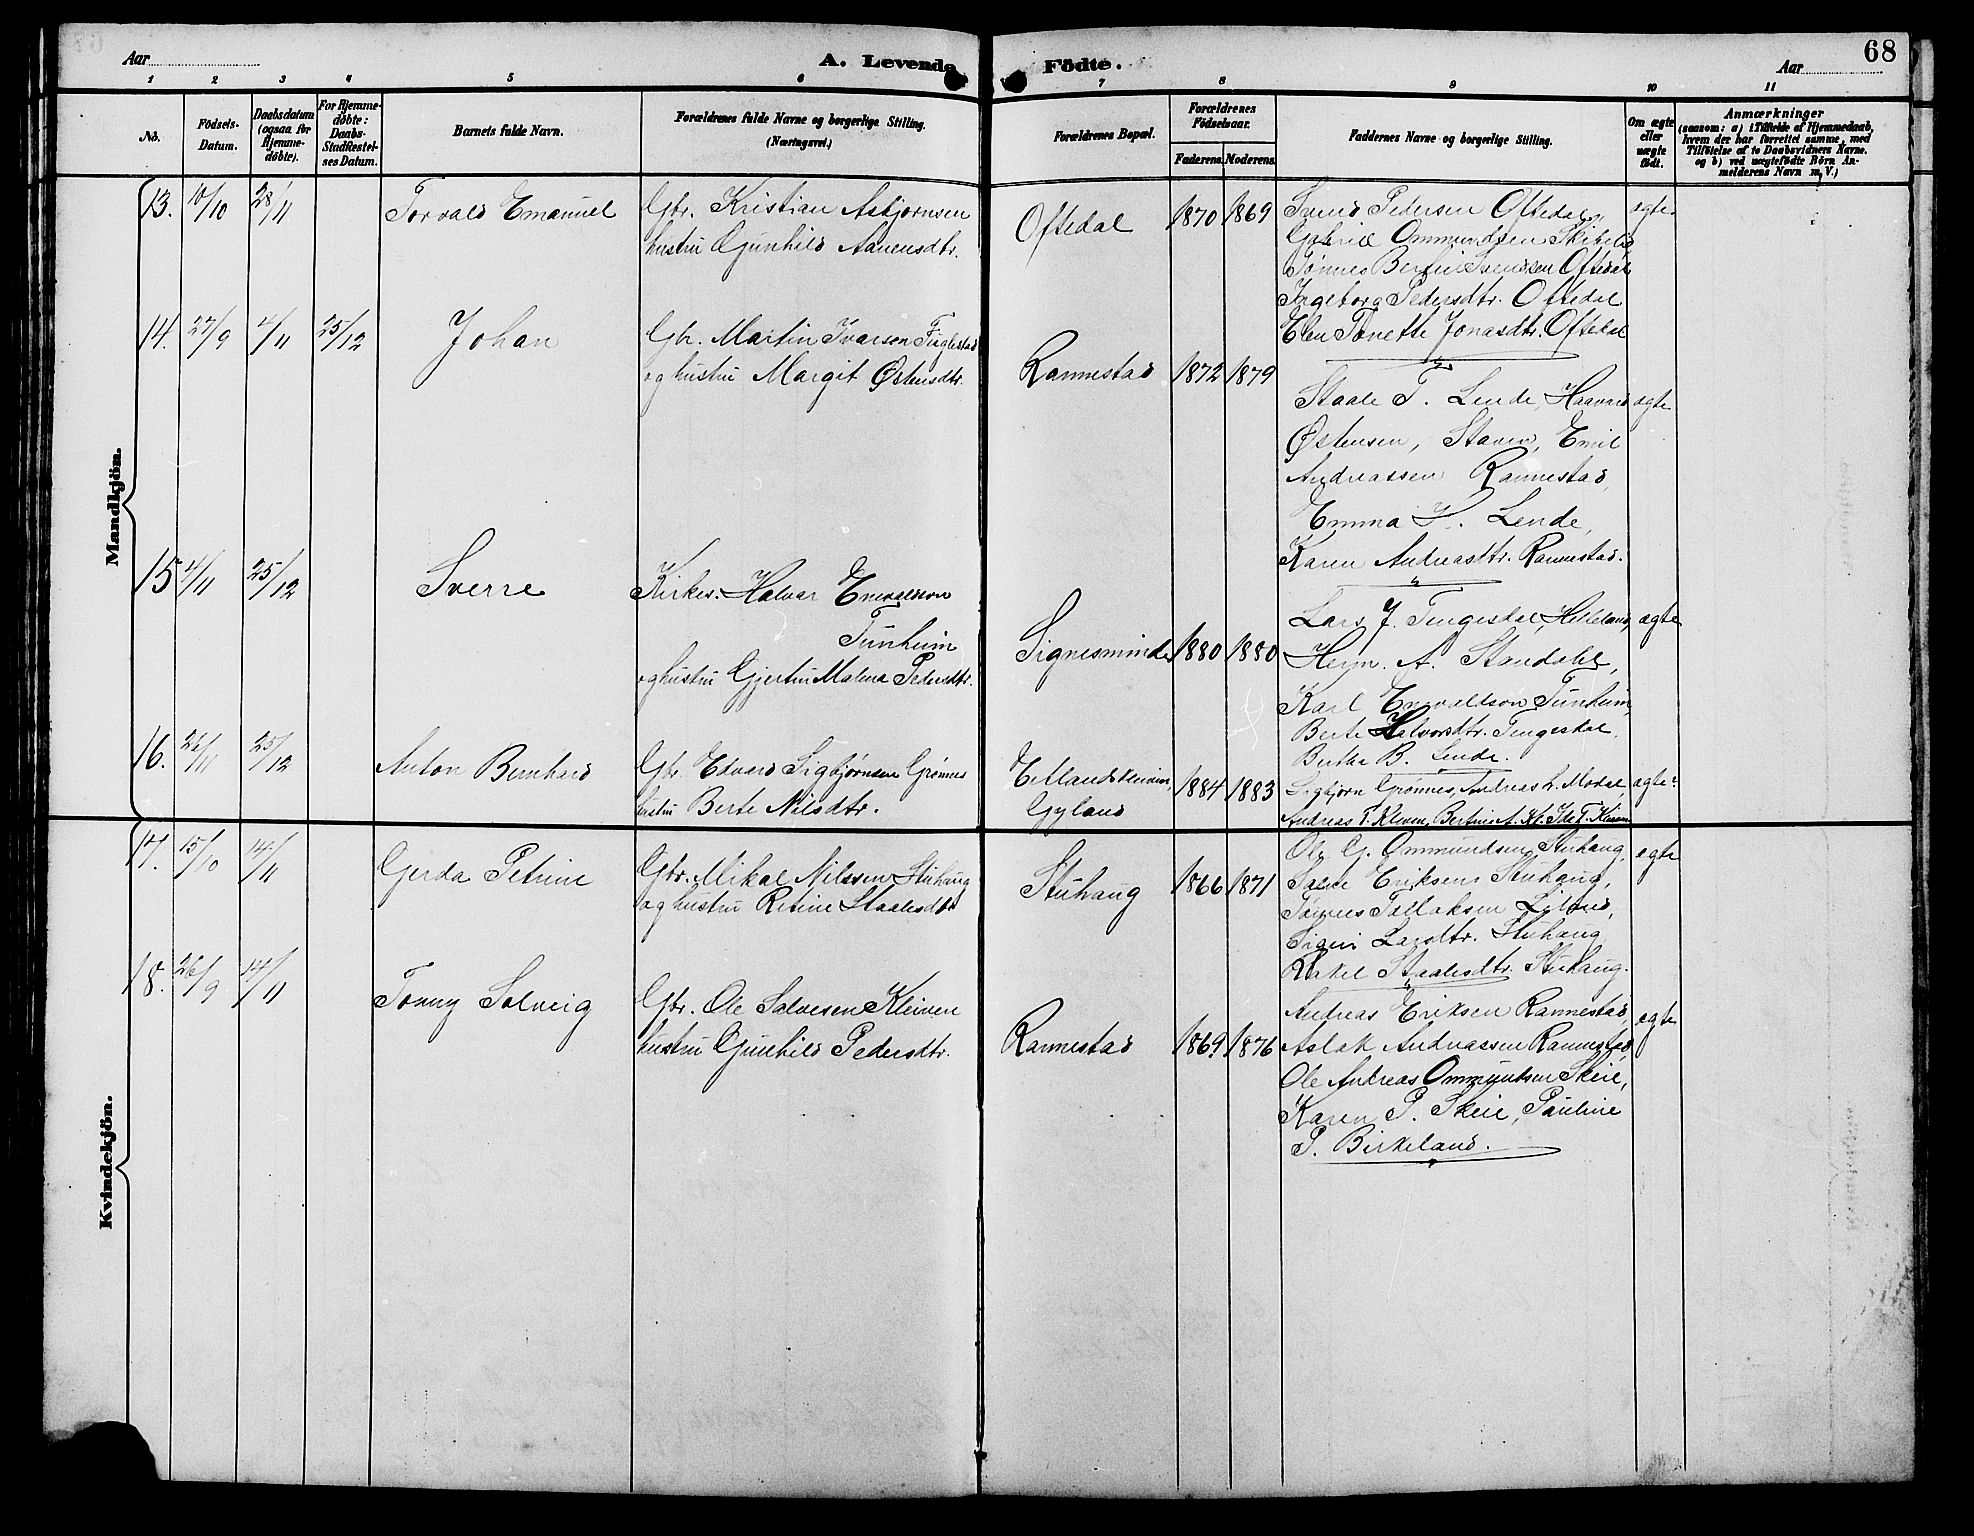 68
Aar
A. Levende Födte.
Aar
1 2 3 4 5 6 7 8 9 10 11
No.
Födsels-
Datum.
Daabsdatum
(ogsaa for
Hjemme-
döbte).
For Hjemme-
döbte:
Daabs-
Stadfæstel-
ses Datum.
Barnets fulde Navn.
Forældrenes fulde Navne og borgerlige Stilling.
(Næringsvei.)
Forældrenes Bopæl.
Forældrenes
Födselsaar.
Faderens. Moderens.
Faddernes Navne og borgerlige Stilling.
Om ægte
eller
uægte
födt.
Anmærkninger
(saasom: a) i Tilfælde af Hjemmedaab,
hvem der har forrettet samme, med
Tilföielse af to Daabsvidners Navne.
og b) ved uægtefödte Börn An-
melderens Navn m. V.)
Mandkjön.
13. 10/10 28/11
Torvald Emanuel
Gbr. Kristian Asbjornsen
hustru Gunhild Aanensdtr.
Oftedal
1870 1869
Svend Pedersen Oftedal,
Gabriel Ommundsen
Tønnes Bertin Svendsen Oftedal
Ingeborg Pedersdtr. Oftedal
Elen Tonette Jonasdtr. Oftedal
ægte
14. 27/9 4/11 25/12
Johan
Gbr. Martin Ivarson
og hustru Margit Østensdtr.
Rannestad
1872 1879
Staale T. Lende, Haavard
Østensen, Staven, Emil
Andreassen Rannestad,
Emma K. Lende,
Karen Andreasdtr. Rannestad.
ægte
15 4/11 25/12
Sverre
Kirkes. Halvar Enevaldson
Tunheim
og hustru Gjertine Malena Pedersdtr.
Signesminde
1880 1880
Lars J. Tengesdal, Helleland,
A. Standahl,
Karl Enevaldson Tunheim,
Berte Halvorsdtr. Tengesdal.
Berthe B. Lende.
ægte
16. 26/11 25/12
Anton Bernhard
Gbr. Edvard Sigbjørnsen Grømnes
hustru Berte Nilsdtr.
Gyland
1884 1883
Sigbjørn Grømnes, Andreas L. Modal,
Andreas T. Kleven, Bertine A. Kl. Ide T. Kleven
ægte
Kvindekjön.
17. 15/10 14/11
Gerda Petrine
Gbr. Mikal Nilssen Stuhaug
og hustru Retine Staalesdtr
Stuhaug
1866 1871
Ole G. Ommundsen Stuhaug,
Salve Eriksen Stuhaug,
Tønnes Tallaksen
Signi Larsdtr. Stuhaug
Rakel Staalesdtr. Stuhaug.
ægte
18. 26/9 14/11
Tonny Solveig
Gbr. Ole Salvesen Kleiven
hustru Gunhild Pedersdtr.
Rannestad
1869 1876
Andreas Eriksen Rannestad,
Aslak Andreassen Rannestad
Ole Andreas Ommundsen Skeie,
Karen P. Skeie, Pauline
P. Birkeland.
ægte